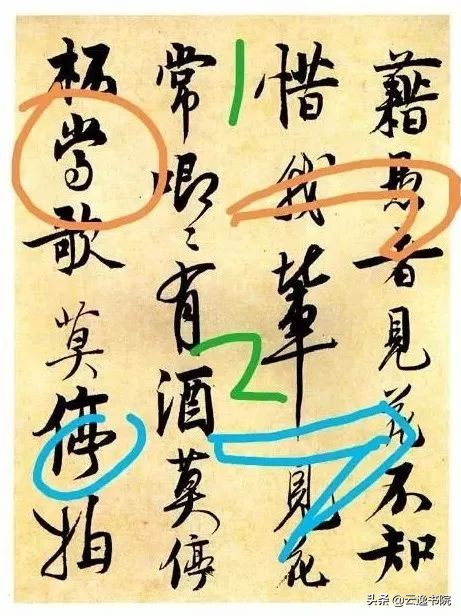 藉者見花不知
惜我輩見花
常唧〻有酒莫停
歌莫拍
1
2
头条 @云逸书院